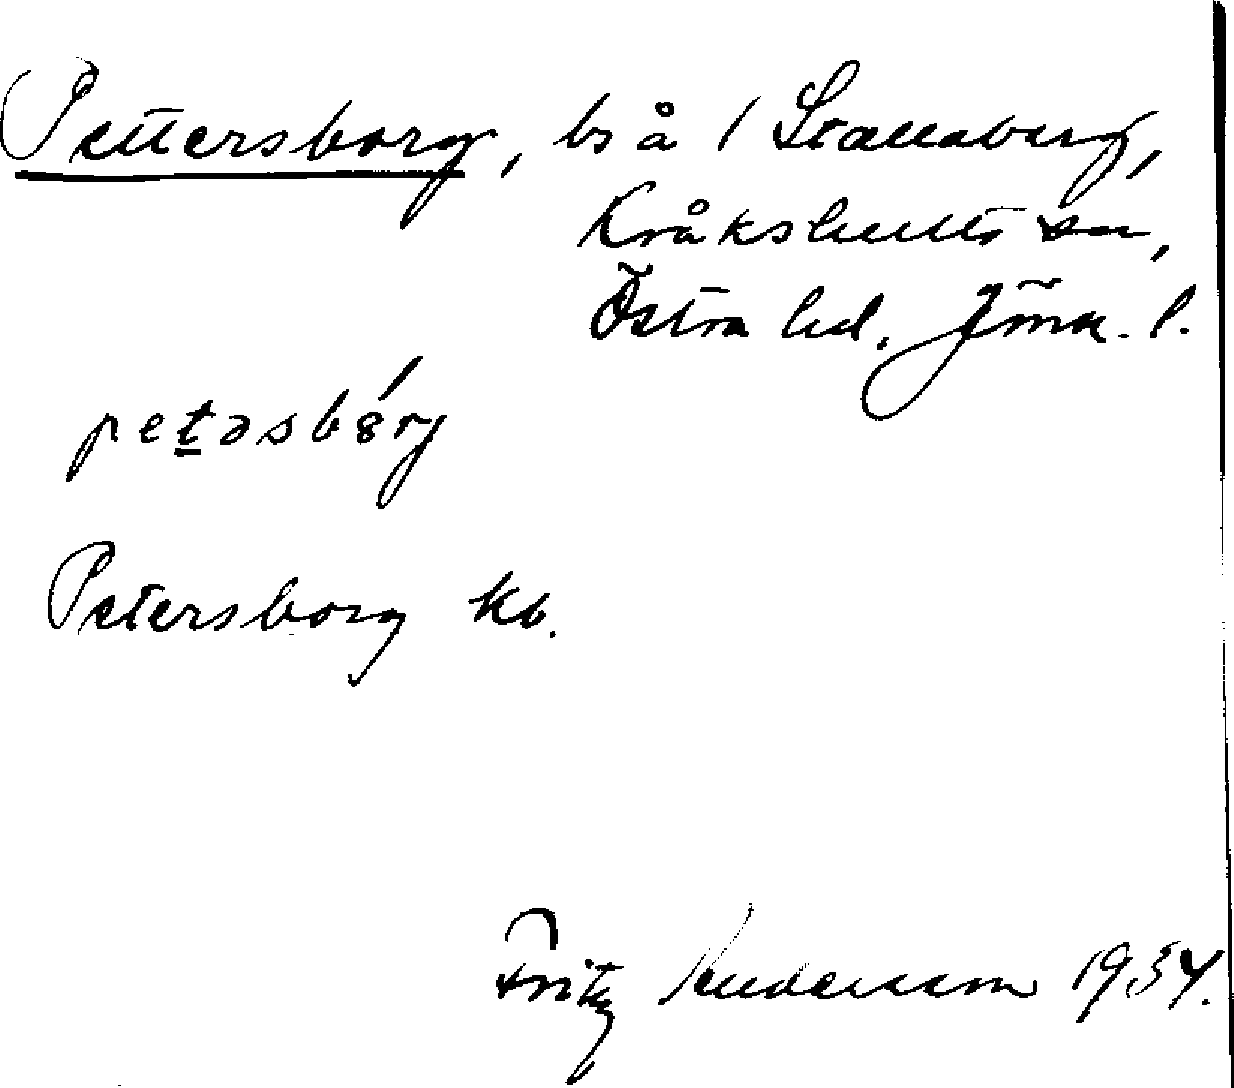 Pettersborg, bs å 1 Stallaberg,
Kråkshults sn,
Östra hd. Jönk. l.
petəsbórj
Petersborg kb.
Fritz 1934.